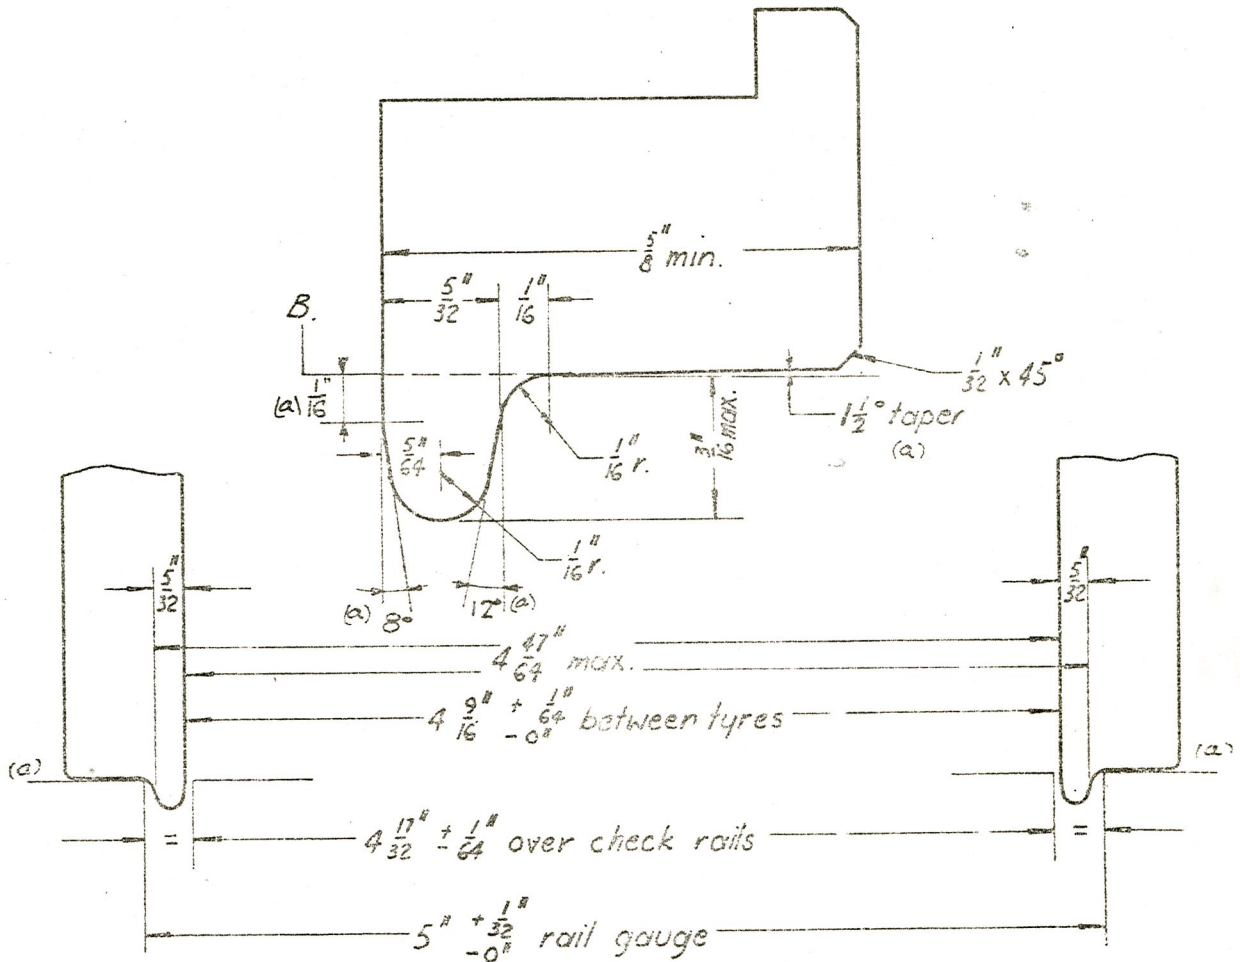 5/8" min.
5/32"
1/16"
B.
(a) 1/16"
1/32" x 45°
1 1/2° taper
(a)
3/16" max.
5/64"
1/16" r.
1/16" r.
(a) 8°
12° (a)
5/32"
5/32"
4 47/64" max.
4 9/16" + 1/64" - 0" between tyres
(a)
(a)
=
4 17/32" ± 1/64" over check rails
=
5" + 1/32" - 0" rail gauge